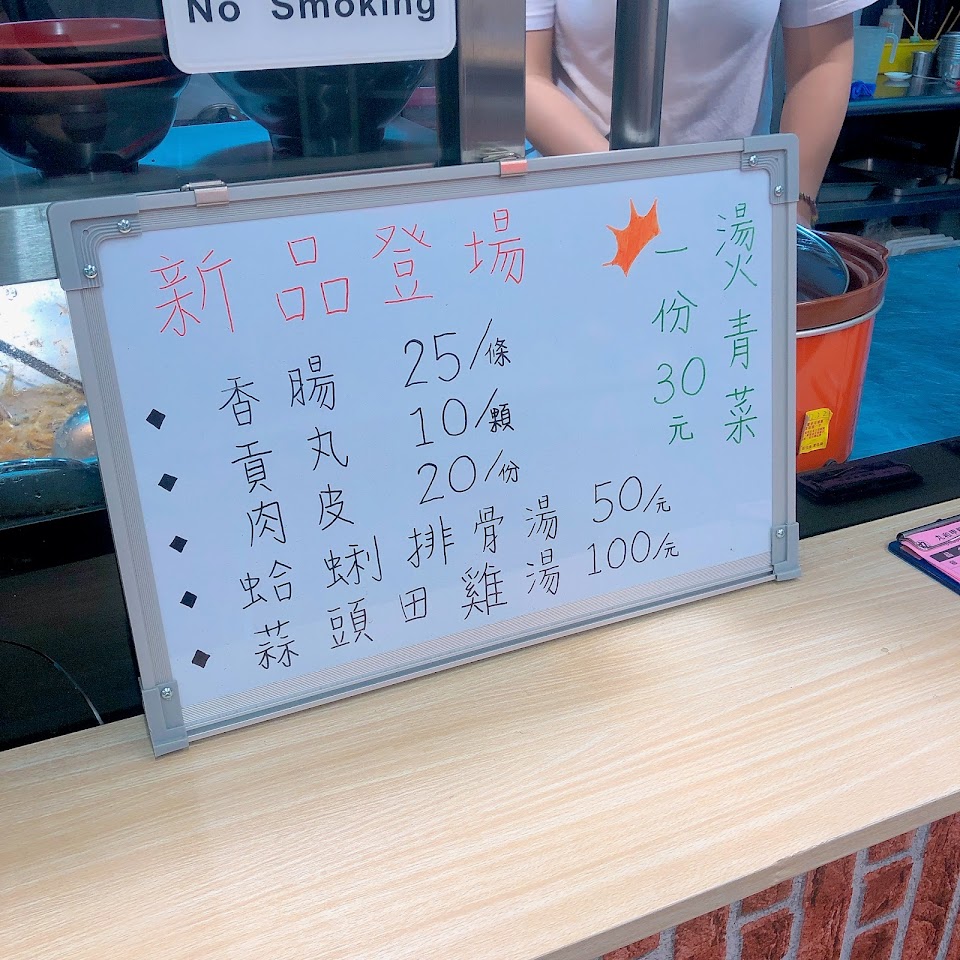 No Smoking
新品登場
香腸 25/條
貢丸 10/顆
肉皮 20/份
蛤蜊排骨湯 50/元
蒜頭田雞湯 100/元
燙青菜
一份30元